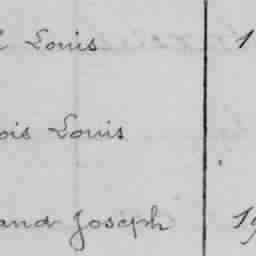 Louis 1
ois Louis
and Joseph 19